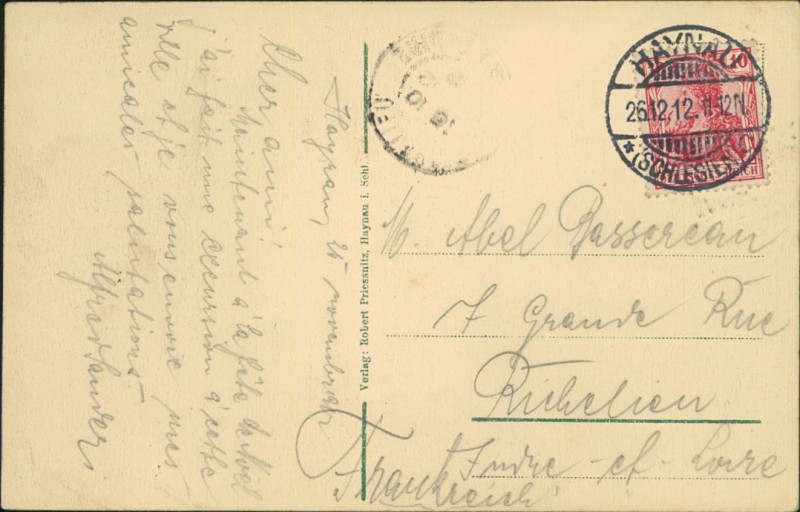 Haynau, 25 novembre
Cher ami!
Maintenant à la fête de Noël
j'ai fait une excursion à cette
ville et je vous envoie mes
amicales salutations.
Alfred Sanders
Verlag: Robert Priessnitz, Haynau i. Schl.
HAYNAU
26.12.12. 11-12N.
* (SCHLESIEN)
10
REICH
M. Abel Passereau
7 Grande Rue
Richelieu
Indre-et-Loire
Frankreich